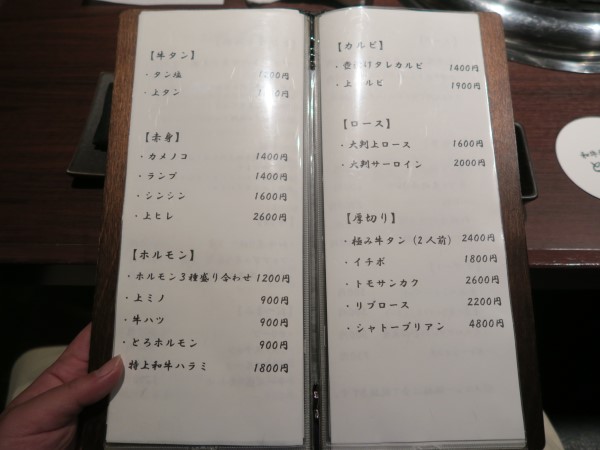 【牛タン】
・タン塩
・上タン
【赤身】
・カメノコ 1400円
・ランプ 1400円
・シンシン 1600円
・上ヒレ 2600円
【ホルモン】
・ホルモン3種盛り合わせ 1200円
・上ミノ 900円
・牛ハツ 900円
・とろホルモン 900円
特上和牛ハラミ 1800円
【カルビ】
・壺漬けタレカルビ 1400円
・上カルビ 1900円
【ロース】
・大判上ロース 1600円
・大判サーロイン 2000円
【厚切り】
・極み牛タン(2人前) 2400円
・イチボ 1800円
・トモサンカク 2600円
・リブロース 2200円
・シャトーブリアン 4800円